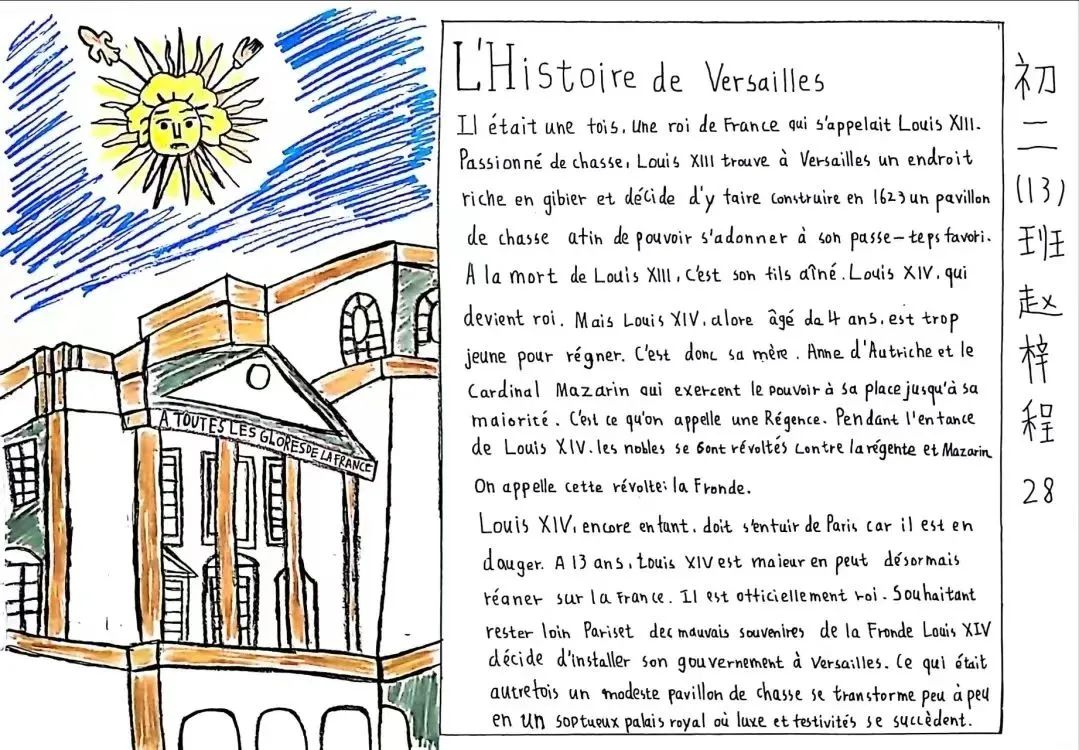 A TOUTES LES GLORES DE LA FRANCE
L'Histoire de Versailles
Il était une tois, Une roi de France qui s'appelait Louis XIII.
Passionné de chasse, Louis XIII trouve à Versailles un endroit
riche en gibier et décide d'y taire construire en 1623 un pavillon
de chasse atin de pouvoir s'adonner à son passe-teps favori.
A la mort de Louis XIII, c'est son tils aîné. Louis XIV, qui
devient roi. Mais Louis XIV, alore âgé da 4 ans, est trop
jeune pour régner. C'est donc sa mère. Anne d'Autriche et le
Cardinal Mazarin qui exercent le pouvoir à sa place jusqu'à sa
maiorité. C'est ce qu'on appelle une Régence. Pendant l'entance
de Louis XIV, les nobles se sont révoltés contre la régente et Mazarin
On appelle cette révolte: la Fronde.
Louis XIV, encore entant, doit s'entuir de Paris car il est en
dauger. A 13 ans, Louis XIV est maieur en peut désormais
réaner sur la France. Il est otticiellement roi. Souhaitant
rester loin Pariset dec mauvais souvenires de la Fronde Louis XIV
décide d'installer son gouvernement à Versailles. Ce qui était
autretois un modeste pavillon de chasse se transforme peu à peu
en un soptueux palais royal où luxe et testivités se succèdent.
初二(13)班赵梓程28